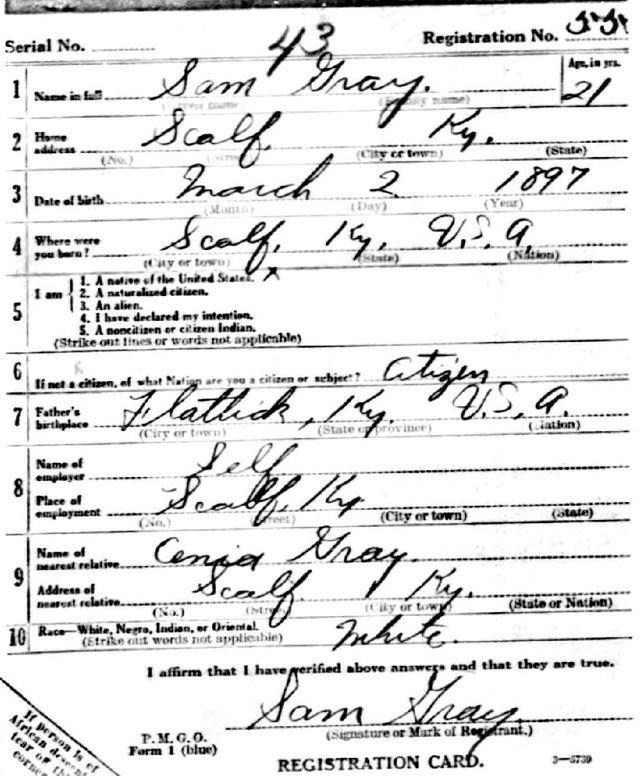 Serial No. 43 Registration No. 55
1 Name in full Sam Gray. Age, in yrs. 21
(Given name) (Family name)
2 Home address Scalf, Ky.
(No.) (Street) (City or town) (State)
3 Date of birth March 2 1897
(Month) (Day) (Year)
4 Where were you born? Scalf, Ky. U.S.A.
(City or town) (State) (Nation)
5 I am
1. A native of the United States. x
2. A naturalized citizen.
3. An alien.
4. I have declared my intention.
5. A noncitizen or citizen Indian.
(Strike out lines or words not applicable)
6 If not a citizen, of what Nation are you a citizen or subject? Citizen
7 Father's birthplace Flatlick, Ky. U.S.A.
(City or town) (State or province) (Nation)
8 Name of employer Self
Place of employment Scalf, Ky
(No.) (Street) (City or town) (State)
9 Name of nearest relative Gray.
Address of nearest relative Scalf, Ky.
(No.) (Street) (City or town) (State or Nation)
10 Race—White, Negro, Indian, or Oriental. White.
(Strike out words not applicable)
I affirm that I have verified above answers and that they are true.
Sam Gray.
(Signature or Mark of Registrant.)
P. M. G. O.
Form 1 (blue)
REGISTRATION CARD. 3—5739
If person is of
African descent
tear off this
corner